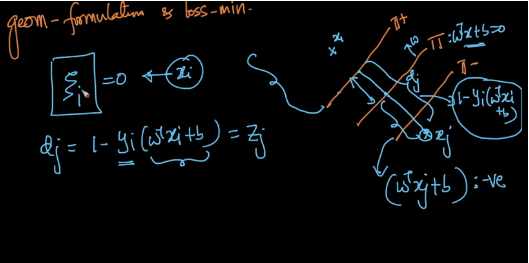 geom-formulation & loss-min.
ξi = 0 ← xi
dj = 1 - yi (wᵀxi + b) = Zj
xi
x
π+
w
π: wᵀx+b=0
π-
dj
1 - yi(wᵀxi
+b)
xj
(wᵀxj+b) : -ve